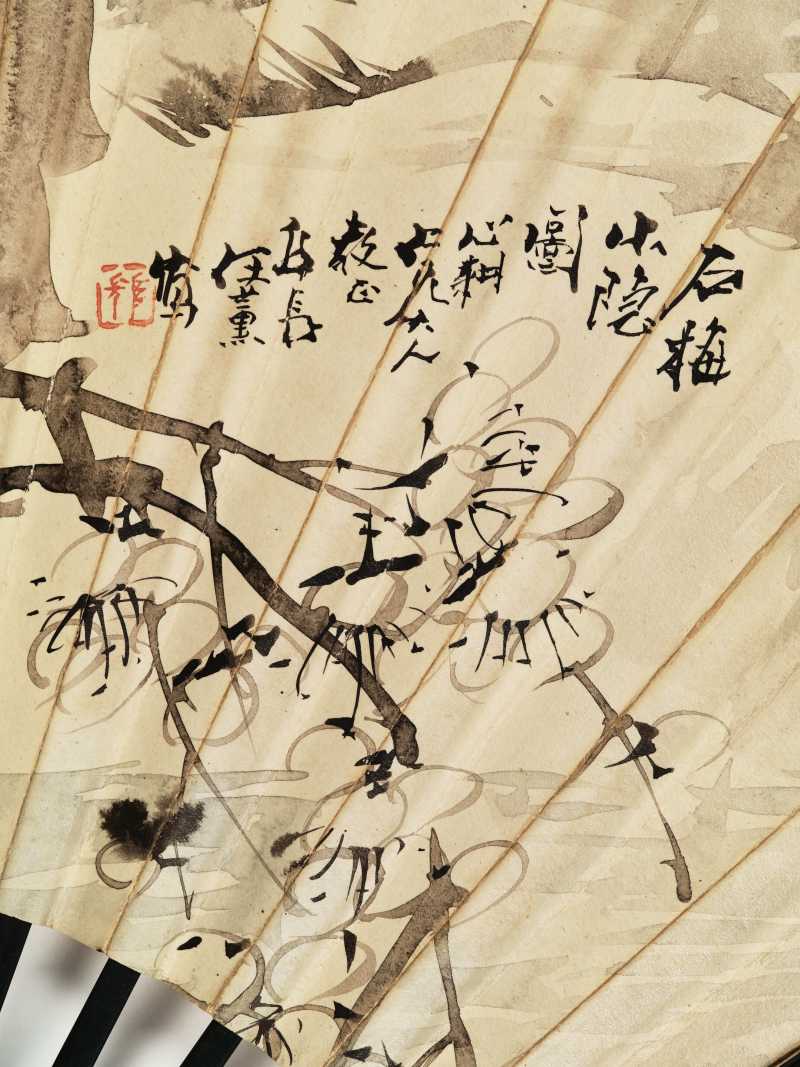 石梅
小隐
圖
心耕
仁兄大人
教正
阜長
任薰
寫